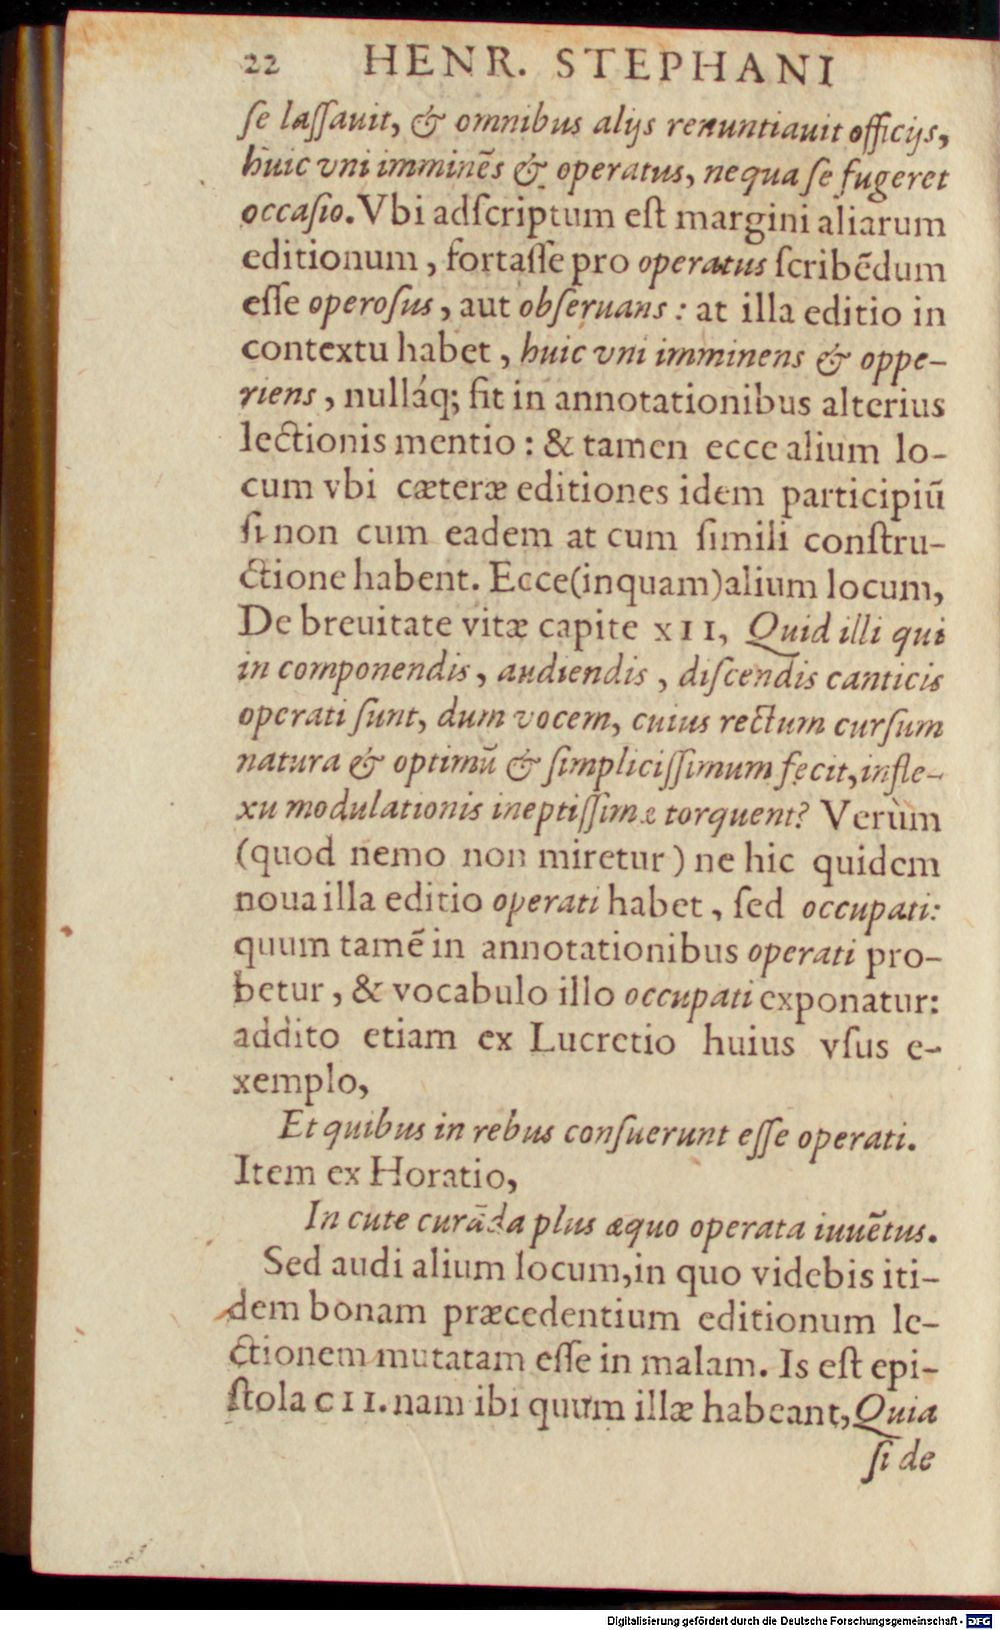 22 HENR. STEPHANI
se lassauit, & omnibus alijs renuntiauit officijs,
huic vni imminẽs & operatus, ne qua se fugeret
occasio. Vbi adscriptum est margini aliarum
editionum, fortasse pro operatus scribẽdum
esse operosus, aut obseruans: at illa editio in
contextu habet, huic vni imminens & oppe-
riens, nulláq; fit in annotationibus alterius
lectionis mentio: & tamen ecce alium lo-
cum vbi cæteræ editiones idem participiũ
si non cum eadem at cum simili constru-
ctione habent. Ecce (inquam) alium locum,
De breuitate vitæ capite XII, Quid illi qui
in componendis, audiendis, discendis canticis
operati sunt, dum vocem, cuius rectum cursum
natura & optimũ & simplicissimum fecit, infle-
xu modulationis ineptissimæ torquent? Verùm
(quod nemo non miretur) ne hic quidem
noua illa editio operati habet, sed occupati:
quum tamẽ in annotationibus operati pro-
betur, & vocabulo illo occupati exponatur:
addito etiam ex Lucretio huius vsus e-
xemplo,
Et quibus in rebus consuerunt esse operati.
Item ex Horatio,
In cute curãda plus æquo operata iuuẽtus.
Sed audi alium locum, in quo videbis iti-
dem bonam præcedentium editionum le-
ctionem mutatam esse in malam. Is est epi-
stola CII. nam ibi quum illæ habeant, Quia
si de
Digitalisierung gefördert durch die Deutsche Forschungsgemeinschaft - DFG